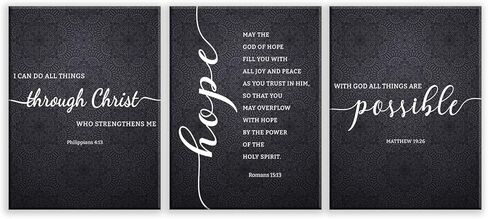 I CAN DO ALL THINGS
through Christ
WHO STRENGTHENS ME
Philippians 4:13
hope
MAY THE
GOD OF HOPE
FILL YOU WITH
ALL JOY AND PEACE
AS YOU TRUST IN HIM,
SO THAT YOU
MAY OVERFLOW
WITH HOPE
BY THE POWER
OF THE
HOLY SPIRIT.
Romans 15:13
WITH GOD ALL THINGS ARE
possible
MATTHEW 19:26